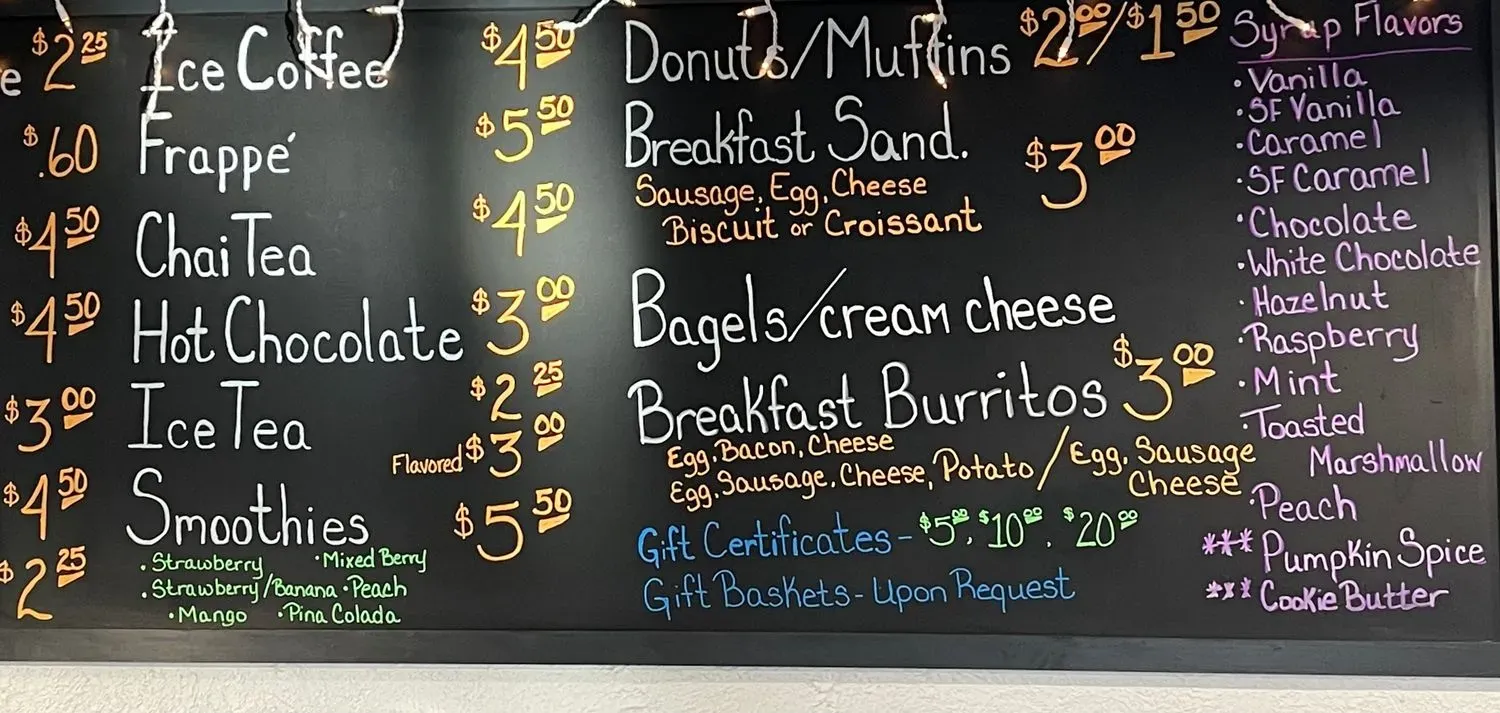 e $2.25
$.60
$4.50
$4.50
$3.00
$4.50
$2.25
Ice Coffee $4.50
Frappé $5.50
Chai Tea $4.50
Hot Chocolate $3.00
Ice Tea $2.25
Flavored $3.00
Smoothies $5.50
· Strawberry · Mixed Berry
· Strawberry/Banana · Peach
· Mango · Pina Colada
Donuts/Muffins $2.00/$1.50
Breakfast Sand. $3.00
Sausage, Egg, Cheese
Biscuit or Croissant
Bagels/cream cheese
Breakfast Burritos $3.00
Egg, Bacon, Cheese
Egg, Sausage, Cheese, Potato / Egg, Sausage
Cheese
Gift Certificates - $5.00, $10.00, $20.00
Gift Baskets - Upon Request
Syrup Flavors
· Vanilla
· SF Vanilla
· Caramel
· SF Caramel
· Chocolate
· White Chocolate
· Hazelnut
· Raspberry
· Mint
· Toasted
Marshmallow
· Peach
*** Pumpkin Spice
*** Cookie Butter